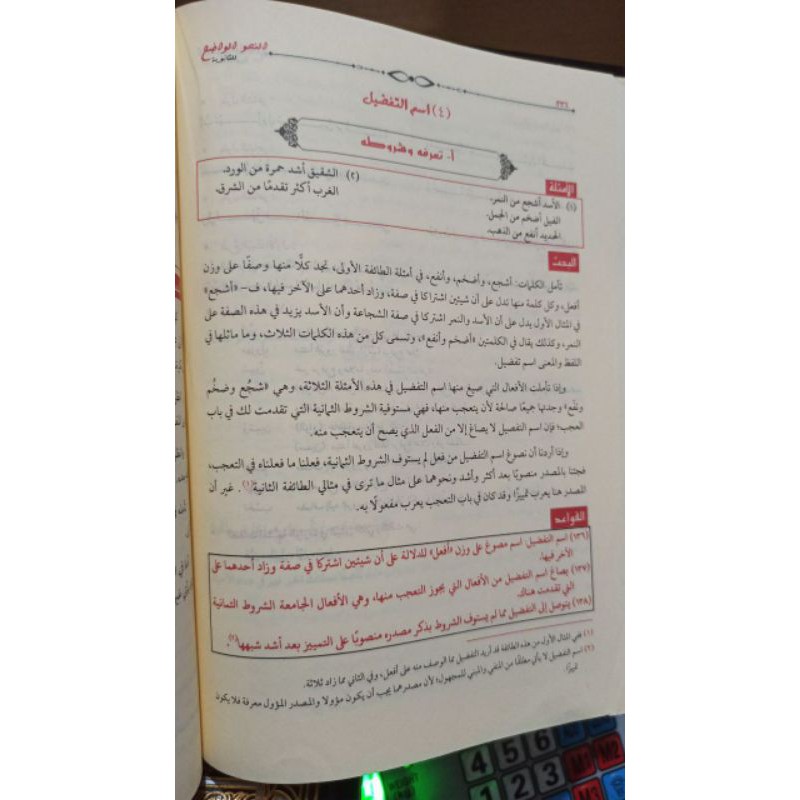 النحو الواضح
للثانوية
٣٣٦
(٤) اسم التفضيل
أ- تعرفه وشروطه
الأمثلة
(١) الأسد أشجع من النمر.
الفيل أضخم من الجمل.
الحديد أنفع من الذهب.
(٢) الشقيق أشد حمرة من الورد.
الغرب أكثر تقدمًا من الشرق.
البحث
تأمل الكلمات: أشجع، وأضخم، وأنفع، في أمثلة الطائفة الأولى، تجد كلًّا منها وصفًا على وزن
أفعل، وكل كلمة منها تدل على أن شيئين اشتراكا في صفة، وزاد أحدهما على الآخر فيها، فـ- «أشجع»
في المثال الأول يدل على أن الأسد والنمر اشتركا في صفة الشجاعة وأن الأسد يزيد في هذه الصفة على
النمر، وكذلك يقال في الكلمتين «أضخم وأنفع»، وتسمى كل من هذه الكلمات الثلاث، وما ماثلها في
اللفظ والمعنى اسم تفضيل.
وإذا تأملت الأفعال التي صيغ منها اسم التفضيل في هذه الأمثلة الثلاثة، وهي «شجُع وضخُم
ونفَع» وجدتها جميعًا صالحة لأن يتعجب منها، فهي مستوفية الشروط الثمانية التي تقدمت لك في باب
العجب؛ فإن اسم التفضيل لا يصاغ إلا من الفعل الذي يصح أن يتعجب منه.
وإذا أردنا أن نصوغ اسم التفضيل من فعل لم يستوف الشروط الثمانية، فعلنا ما فعلناه في التعجب،
فجئنا بالمصدر منصوبًا بعد أكثر وأشد ونحوهما على مثال ما ترى في مثالي الطائفة الثانية(١). غير أن
المصدر هنا يعرب تمييزًا؛ وقد كان في باب التعجب يعرب مفعولًا به.
القواعد
(١٣٦) اسم التفضيل: اسم مصوغ على وزن «أفعل» للدلالة على أن شيئين اشتركا في صفة وزاد أحدهما على
الآخر فيها.
(١٣٧) يصاغ اسم التفضيل من الأفعال التي يجوز التعجب منها، وهي الأفعال الجامعة الشروط الثمانية
التي تقدمت هناك.
(١٣٨) يتوصل إلى التفضيل مما لم يستوف الشروط بذكر مصدره منصوبًا على التمييز بعد أشد شبهها(٢).
(١) ففي المثال الأول من هذه الطائفة قد أريد التفضيل مما الوصف منه على أفعل، وفي الثاني مما زاد ثلاثة.
(٢) اسم التفضيل لا يأتي مطلقًا من المنفي والمبني للمجهول؛ لأن مصدرهما يجب أن يكون مؤولا والمصدر المؤول معرفة فلا يكون
تمييزًا.
4 5 6
1 2 3
M1 M2
M3
WEIGHT